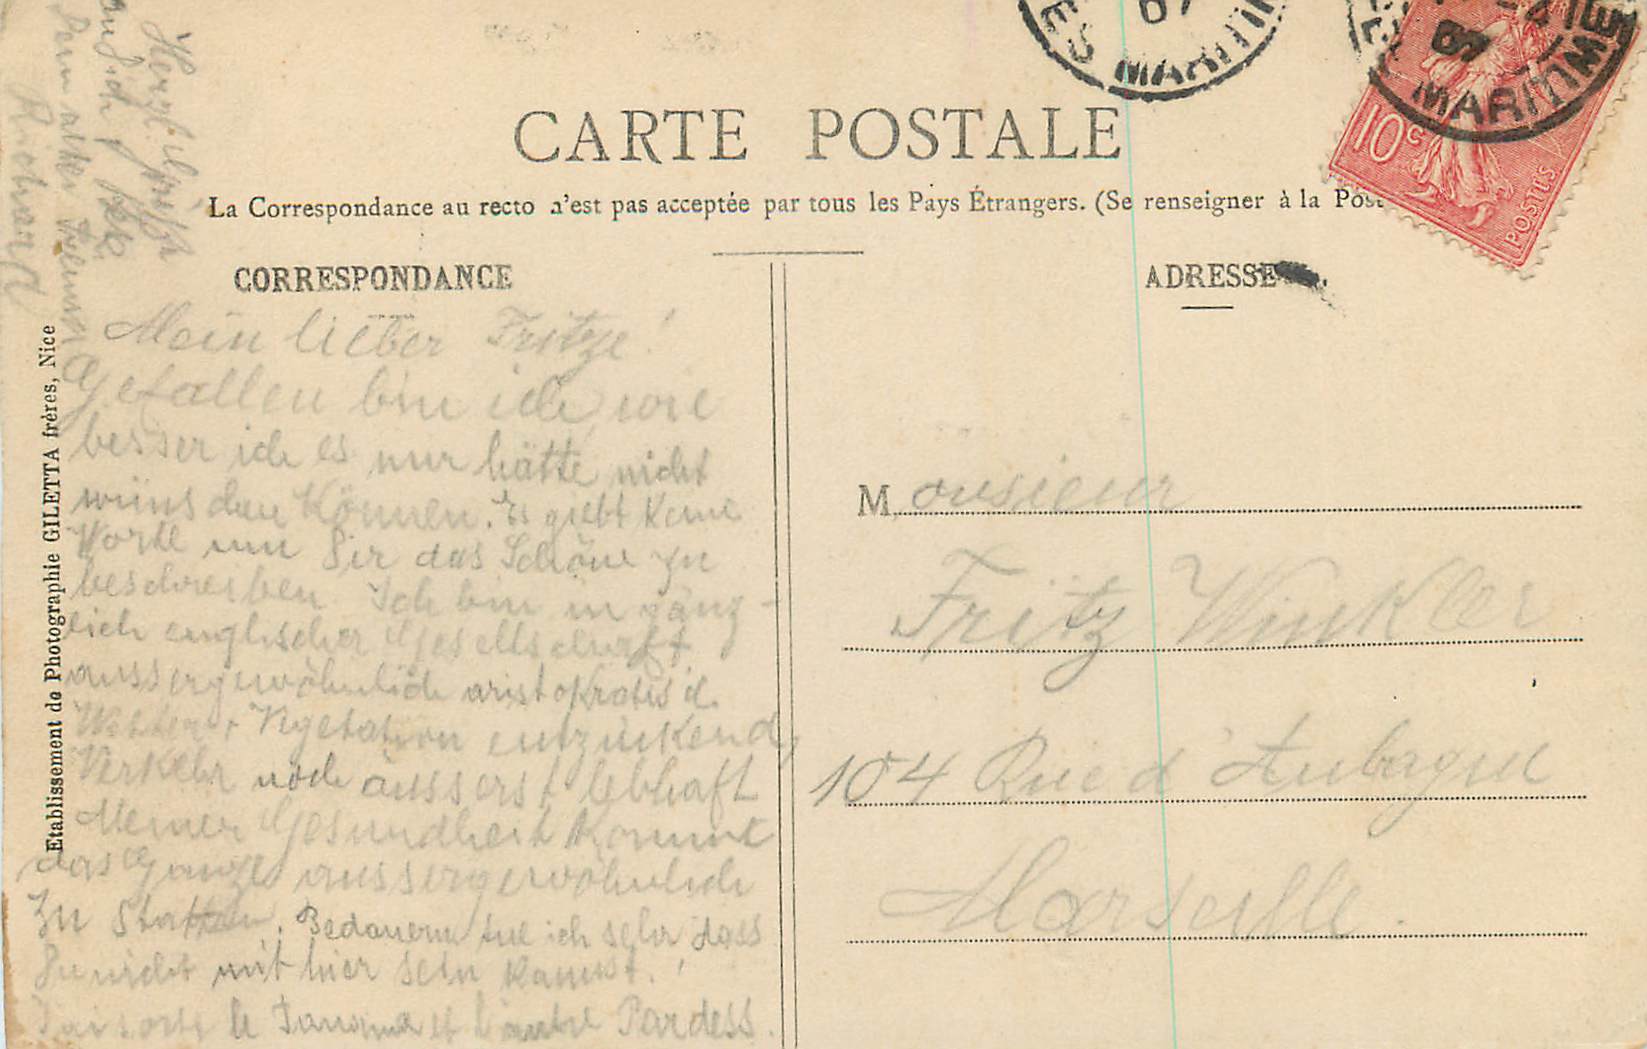 ES MARITIM
07
MARITIME
10c
POSTES
CARTE POSTALE
La Correspondance au recto n'est pas acceptée par tous les Pays Étrangers. (Se renseigner à la Pos
CORRESPONDANCE
ADRESSE
Etablissement de Photographie GILETTA frères, Nice
Mein lieber Fritze!
Gefallen bin ich, wie
besser ich es nur hätte nicht
wünschen können. Es giebt keine
Worte um Dir das Schöne zu
beschreiben. Ich bin in gänz-
lich englischer Gesellschaft
aussergewöhnlich aristokratisch.
Wetter + Vegetation entzückend,
Verkehr noch äusserst lebhaft
Meiner Gesundheit kommt
das Ganze aussergewöhnlich
zu Statten. Bedauern tue ich sehr dass
Du nicht mit hier sein kannst.
le Panama et l'autre Pardess.
Herzl. Grüsst
Dein alter Freund
Richard
Monsieur
Fritz Winkler
104 Rue d'Aubagne
Marseille.